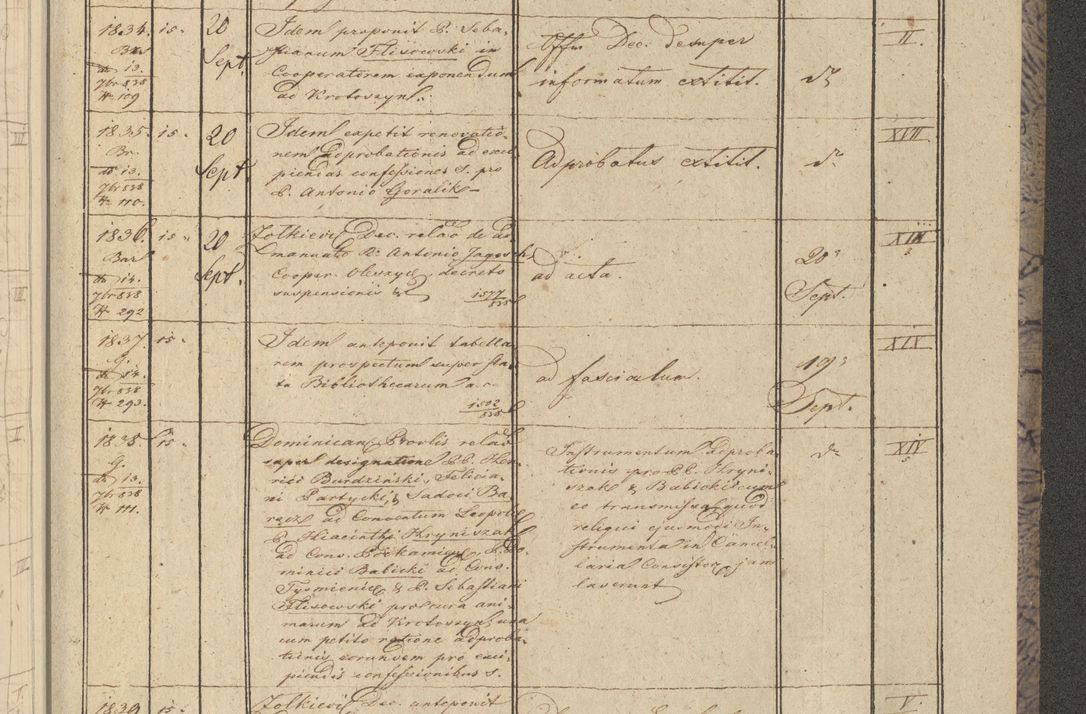 1834. 15. 20 Sept.
dto 13.
7br 838
№ 109
Idem proponit P. Seba-
stianum Flisowski in
Cooperatorem exponendum
ad Krotoszyn.
Offm Dec. desuper
informatum extitit.
II.
1835. 15. 20 Sept.
dto 13.
7br 838
№ 110.
Idem expetit renovatio-
nem adprobationis ad exci-
piendas confessiones s. pro
P. Antonio Goralik
Adprobatus extitit.
XIII
1836. 15. 20 Sept.
dto 14.
7br 838
№ 292
Zolkiewi Dec. relao de ad
manuato P. Antonio
Cooper. Oleszyc. decreto
suspensionis &
1577/838
ad acta.
20 Sept.
XIII
1837. 15.
G.
dto 14.
7br 838
№ 293.
Idem anteponit tabella
rem prospectum super sta-
tu Bibliothecarum
1592/838
ad fasciculum.
19 Sept.
XIX
1838 15.
G.
dto 13.
7br 838
№ 111.
Dominican. Provlis relao
super designatione PP. Hen-
rici Burdziński, Felicia-
ni Partycki, & Sadoci Ba-
racz ad Conventum Leopol.
P. Hiacinthi Kryniszak
ad Conv. Podkamien, P. Do-
minici Babicki ad Conv.
Tysmienic. & P. Sebastiani
Flisowski pro cura ani-
marum ad Krotoszyn, una
cum petito ratione adproba-
tionis eorundem pro exci-
piendis confessionibus s.
Instrumentum adproba-
tionis pro PP. Kryni-
szak & Babicki cum
eo transmissa, quod
reliqui ejusmodi In-
strumenta in Cancel-
laria Consistor. jam
laverunt
XIV
1839 15.
Zolkiewi Dec. anteponit
V.